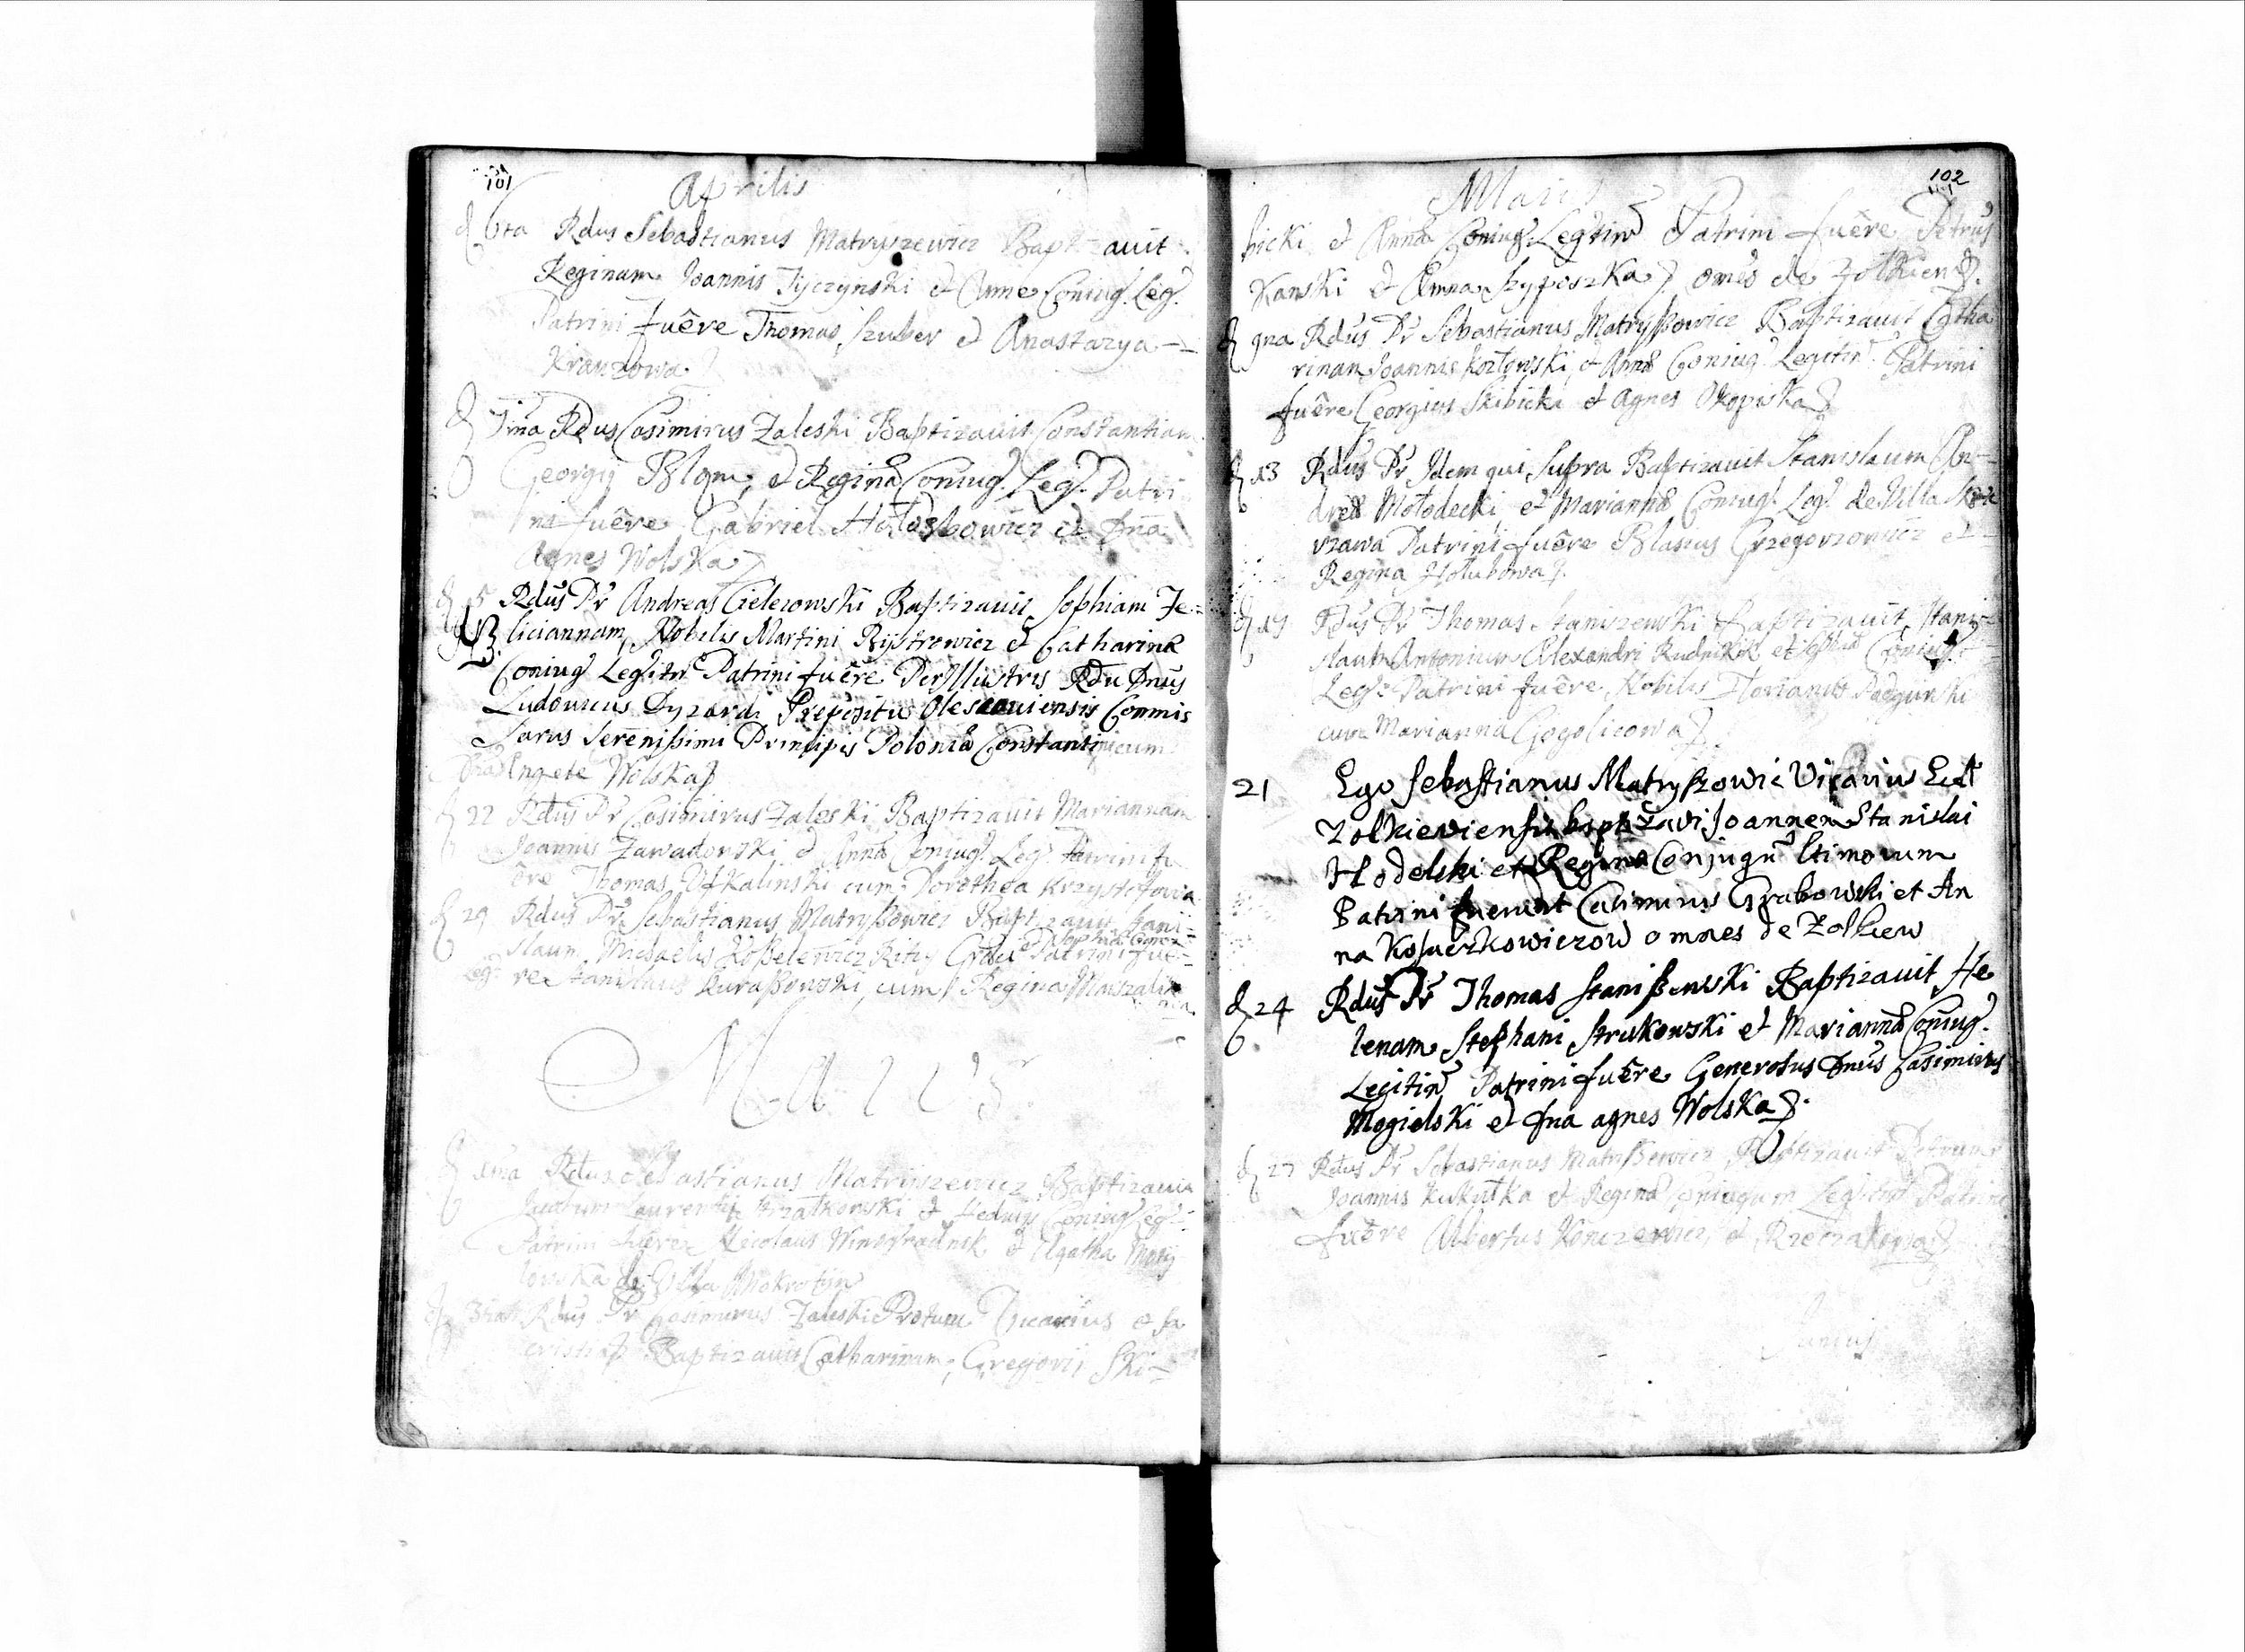 101
Aprilis
d 6ta Rdus Sebastianus Matryszewicz Bapt avit
Reginam Joannis Tyczynski et Anne Coniug. Leg.
Patrini fuêre Thomas Szuber et Anastazya
Kranzowa
d Rdus Casimirus Zaleski Baptizavit Constantiam
Georgij Blom, et Regina Coniug. Leg. Patri
ni fuêre Gabriel et Dna
Agnes Wolska
d 15 Rdus Pr Andreas Cielezowski Baptizavit Sophiam Fe=
liciannam, Nobilis Martini Bystrowicz et Catharinæ
Coniug Legitr Patrini fuêre Perillustris Rdu Dnus
Ludovicus Præpositu Olesczuiensis Commis
sarus Serenissimi Principis Poloniæ Constantini cum
Wolska
d 22 Rdus Pr Casimirus Zaleski Baptizavit Mariannam
Joannis Zawadowski et Anna Coniug. Leg. Patrini fu
êre Thomas Uskalinski cum Dorothea Krzysztofowa
d 29 Rdus Pr Sebastianus Matryßowicz Baptizavit Stani=
slaum, Michaelis Koßelewicz Ritus Græci et Sophiæ Coniug
Leg. Patrini fuê=
re Stanislaus Kuraßowski, cum Regina Marszalko
wna
Maius
d 1ma Rdus Sebastianus Matriiszewicz Baptizavit
Laurentii Brzatkowski et Hedwig Coniug Leg.
Patrini fuêre Nicolaus Winohradnik et Agatha Mosij
lowska de Villa Mokrotin
d Rdus Pr Casimirus Zaleski Protunc Vicarius et Sa
cristia Baptizavit Catharinam, Gregorij Ski=
102
Maius
bicki et Anna Coniug Legtim Patrini fuêre Petrus
Kanski et Anna Szyposzka omēs de Zołkiew.
d 9na Rdus Pr Sebastianus Matryßowicz Baptizavit Catha
rinam Joannis Kozłowski, et Annæ Coniug. Legitim. Patrini
fuêre Georgius Skibicki et Agnes Okopiska
d 13 Rdus Pr Idem qui Supra Baptizavit Stanislaum An=
dreæ Mołodecki et Mariannæ Coniug. Leg. de Villa Skwa
rzawa Patrini fuêre Blasius Grzegorzowicz et
Regina Hołubowa.
d 19 Rdus Pr Thomas Staniszewski Baptizavit Stani=
slaum Antonium Alexandri Rudnikik et Sophiæ Coniug
Leg. Patrini fuêre, Nobilis Florianus Podgurski
cum Marianna Gogolicowa
21 Ego Sebastianus Matryßowic Vicarius Eccl
Zolkieviensis baptizavi Joannem Stanislai
Hlodelski et Regina Conjugū ltimorum
Patrini fuerunt Casimirus Grabowski et An
na Kosaczkowiczow omnes de Zolkiew
d 24 Rdus Pr Thomas Stanißewski Baptizavit He
lenam Stephani Strukowski et Mariannæ Coniug.
Legitim Patrini fuêre Generosus Dnus Casimirus
Mogielski et Dna agnes Wolska.
d 27 Rdus Pr Sebastianus Matryßewicz Baptizavit Petrum
Joannis Kukułka et Regina Coniugum Legitim Patrini
fuêre Albertus Konczewicz, et Rzeczakowa
Junius